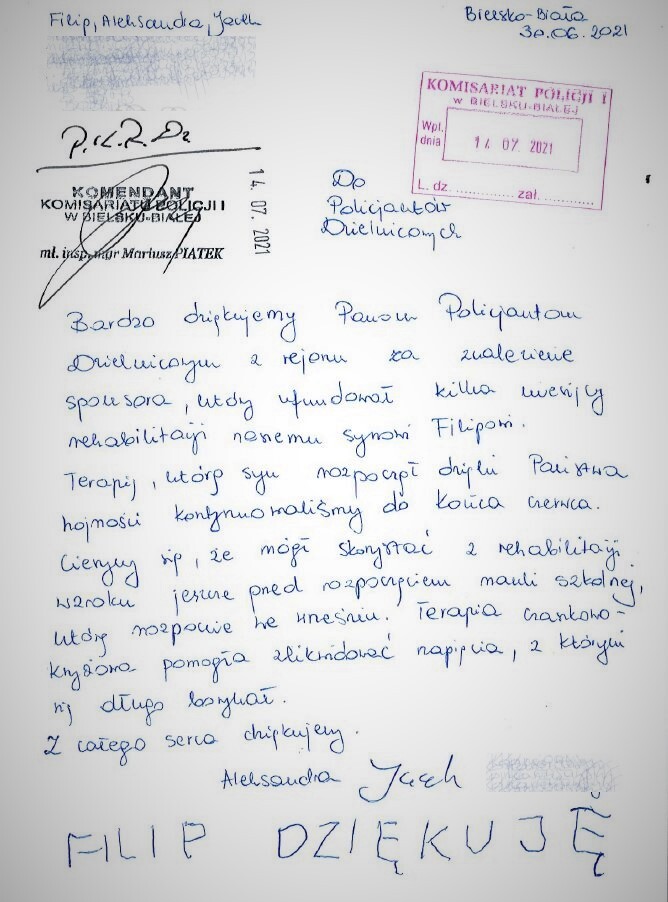 Filip, Aleksandra, Jacek
Bielsko-Biała
30.06.2021
P.K.R.Dz
KOMENDANT
KOMISARIATU POLICJI I
W BIELSKU-BIAŁEJ
mł. insp. mgr Mariusz PIĄTEK
14. 07. 2021
KOMISARIAT POLICJI I
w BIELSKU-BIAŁEJ
Wpł.
dnia
14 07. 2021
L. dz. .............. zał. ..............
Do
Policjantów
Dzielnicowych
Bardzo dziękujemy Panom Policjantom
Dzielnicowym z rejonu za znalezienie
sponsora, który ufundował kilka miesięcy
rehabilitacji naszemu synowi Filipowi.
Terapię, którą syn rozpoczął dzięki Państwa
hojności kontynuowaliśmy do końca czerwca.
Cieszymy się, że mógł skorzystać z rehabilitacji
wzroku jeszcze przed rozpoczęciem nauki szkolnej,
którą rozpocznie we wrześniu. Terapia czaszkowo-
krzyżowa pomogła zlikwidować napięcia, z którymi
się długo borykał.
Z całego serca dziękujemy.
Aleksandra Jacek
FILIP DZIĘKUJĘ